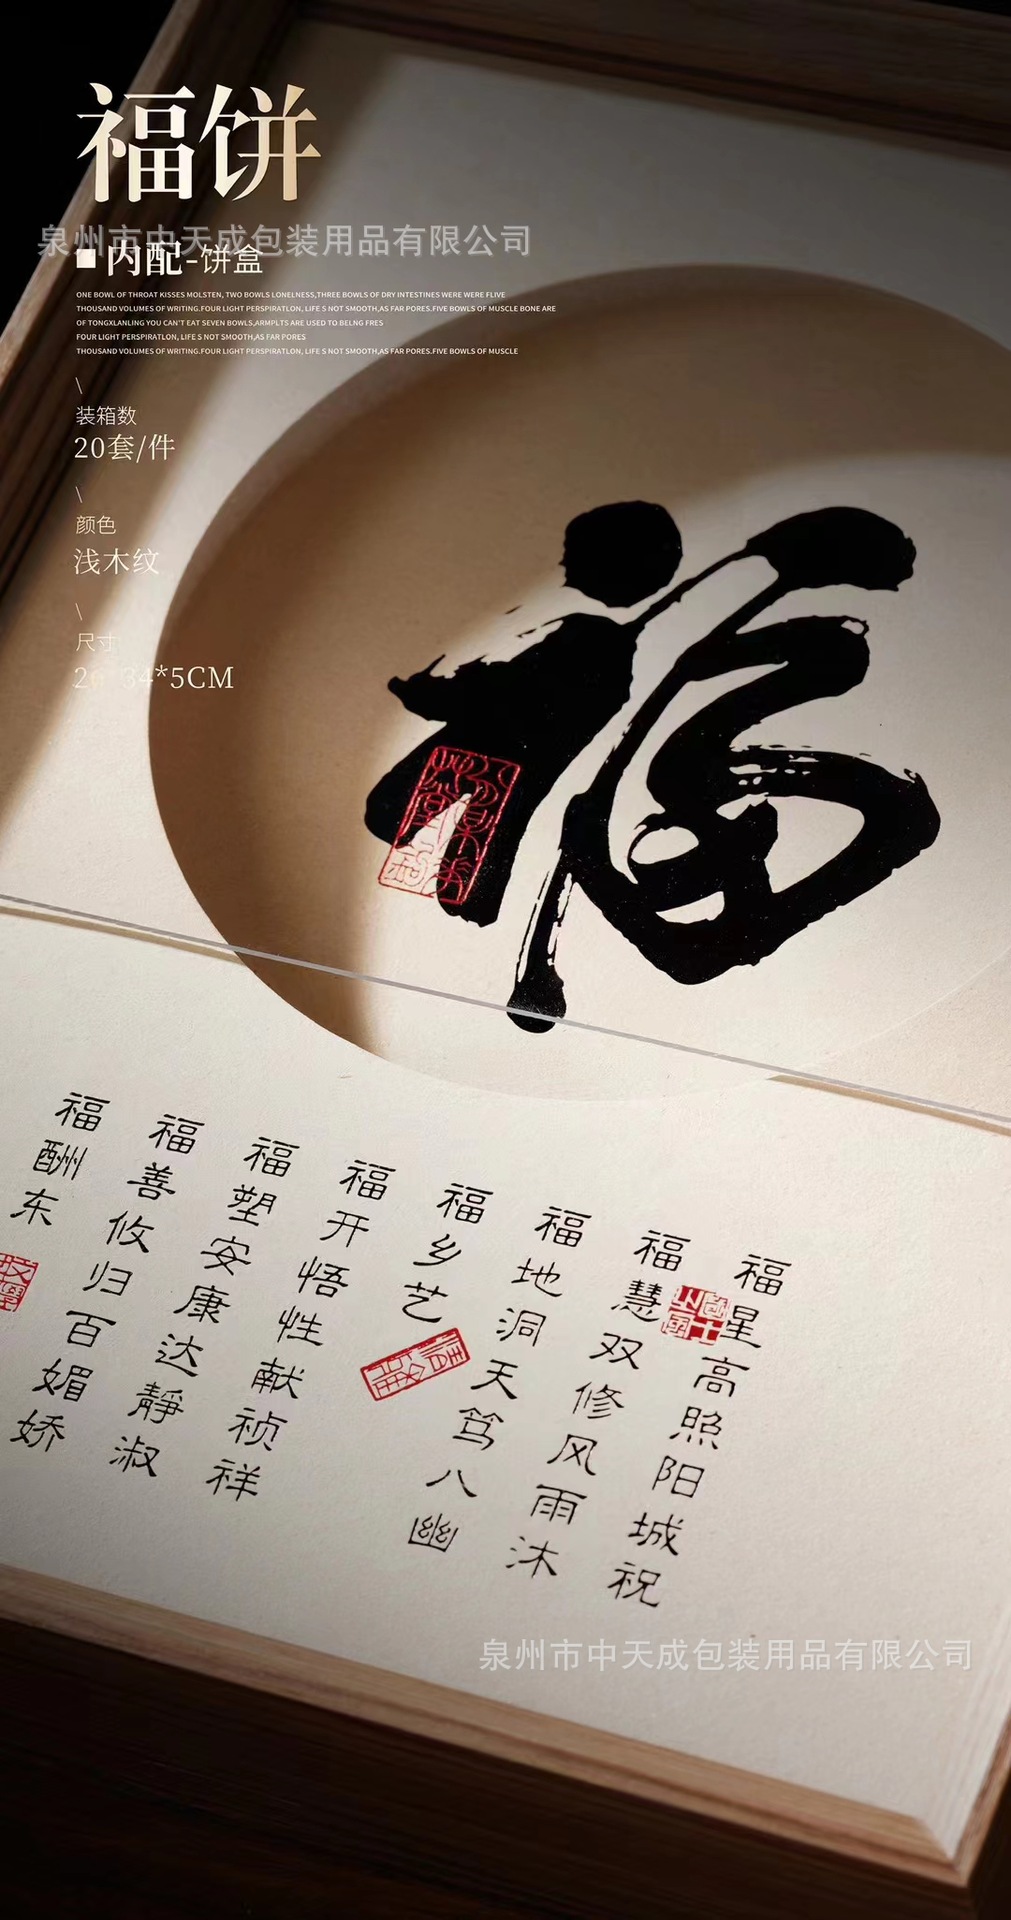 福饼
泉州市中天成包装用品有限公司
内配-饼盒
ONE BOWL OF THROAT KISSES MOLSTEN, TWO BOWLS LONELNESS,THREE BOWLS OF DRY INTESTINES WERE WERE FLIVE
THOUSAND VOLUMES OF WRITING.FOUR LIGHT PERSPIRATLON, LIFE S NOT SMOOTH,AS FAR PORES.FIVE BOWLS OF MUSCLE BONE ARE
OF TONGXLANLING YOU CAN'T EAT SEVEN BOWLS,ARMPLTS ARE USED TO BELNG FRES
FOUR LIGHT PERSPIRATLON, LIFE S NOT SMOOTH,AS FAR PORES
THOUSAND VOLUMES OF WRITING.FOUR LIGHT PERSPIRATLON, LIFE S NOT SMOOTH,AS FAR PORES.FIVE BOWLS OF MUSCLE
\
装箱数
20套/件
\
颜色
浅木纹
\
尺寸
34*5CM
福
福星高照阳城祝
福慧双修风雨沐
福地洞天笃八幽
福乡艺
福开悟性献祯祥
福塑安康达靜淑
福善攸归百媚娇
福酬东
泉州市中天成包装用品有限公司